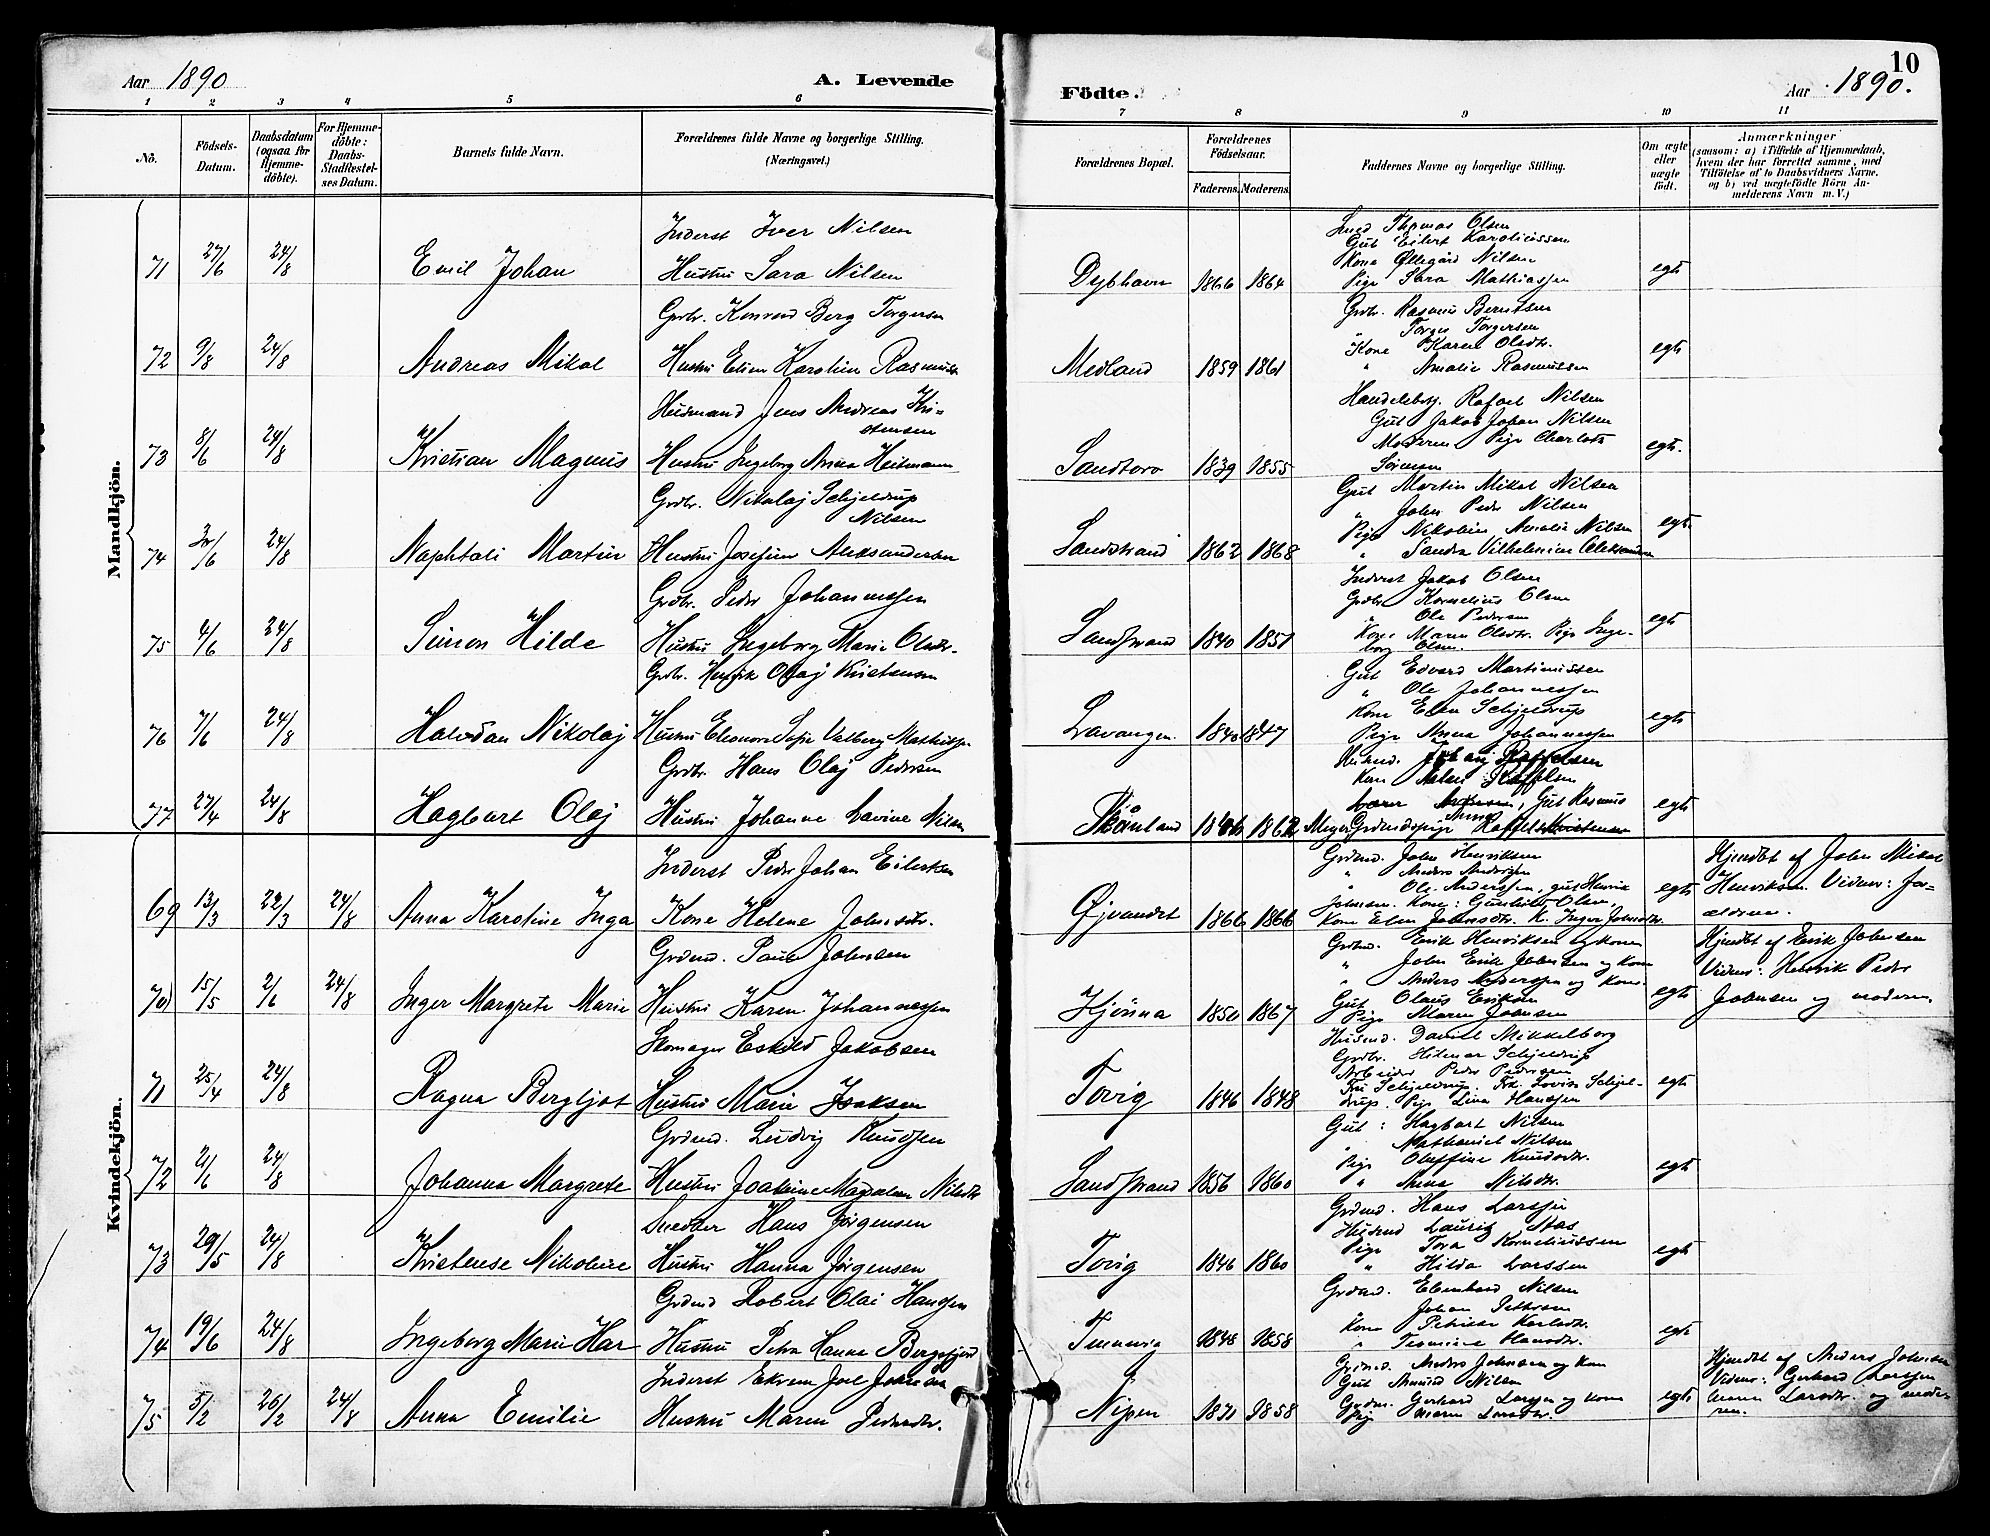 Aar 1890
A. Levende
Födte.
10
Aar 1890.
1 2 3 4 5 6 7 8 9 10 11
No.
Födsels-Datum.
Daabsdatum (ogsaa for Hjemme-döbte).
For Hjemme-döbte: Daabs-Stadfæstel-ses Datum.
Barnets fulde Navn.
Forældrenes fulde Navne og borgerlige Stilling.
(Næringsvei.)
Forældrenes Bopæl.
Forældrenes Födselsaar.
Faderens. Moderens.
Faddernes Navne og borgerlige Stilling.
Om ægte eller uægte födt.
Anmærkninger
(saasom: a) i Tilfælde af Hjemmedaab,
hvem der har forrettet samme, med
Tilföielse af to Daabsvidners Navne,
og b) ved uægtefödte Börn An-
melderens Navn m.V.)
Mandkjön.
71 27/6 24/8 Emil Johan
Inderst Iver Nilsen
Hustru Sara Nilsen
Dybhavn 1866 1864
Smed Thomas Olsen
Gut Eilert Karoliussen
Kone Øllegård Nilsen
Pige Sara Mathiassen
egte
72 9/8 24/8 Andreas Mikal
Grdbr. Konrad Berg Torgersen
Hustru Elien Karoline Rasmusdr
Medland 1859 1861
Grdbr. Rasmus Berntsen
Torges Torgersen
Kone Karen Olsdtr.
" Amalie Rasmussen
egte
73 8/6 24/8 Kristian Magnus
Husmand Jens Andreas Kri-
stensen
Hustru Ingeborg Anna Heitmann
Sandtorv 1839 1855
Handelsbrg. Rafael Nilsen
Gut Jakob Johan Nilsen
Moderen Pige Charlotte
Sörensen
egte.
74 24/8 Naphtali Martin
Grdbr. Nikolaj Schjeldrup
Nilsen
Hustru Josefine Aleksandersen
Sandstrand 1862 1868
Gut Martin Mikal Nilsen
" John Peder Nilsen
Pige Nikoline Amalie Nilsen
" Sandra Vilhelmine Aleksandersen
egte
75 4/6 24/8 Simon Hilde
Grdbr. Peder Johannessen
Hustru Ingeborg Marie Olsdtr.
Sandstrand 1840 1851
Inderst Jakob Olsen
Grdbr Kornelius Olsen
Ole Pedersen
Kone Maren Olsdtr. Pige Inge-
borg Olsen.
egte
76 7/6 24/8 Halvdan Nikolaj
Grdbr. Henrik Olaj Kristensen
Hustru Eleonora Sofie Valberg Mathisen
Lavangen. 1840 1847
Gut Edvard Martinussen
" Ole Johannessen
Kone Elen Schjeldrup
Pige Anna Johannessen
egte
77 27/4 24/8 Hagbart Olaj
Grdbr. Hans Olaj Pedersen
Hustru Johanne Lavine Nilsen
Skånland 1862
Kone
Gut Rasmus
egte
Kvindekjön.
69 13/3 22/3 24/8 Anna Karoline Inga
Inderst Peder Johan Eilertsen
Kone Helene Johnsdtr.
Øjvandet 1866 1866
Grdmd. John Henriksen
" Anders Andersen
" Ole Anderssen, gut Henrik
Johnsen. Kone: Gunhild Olsen,
Kone Elen Johnsdtr. K. Inger Johnsdtr.
egte
Hjmdbt af John Mikal
Henriksen. Vidner: For-
ældrene.
70 15/5 2/6 24/8 Inger Margrete Marie
Grdmd. Paul Johnsen
Hustru Karen Johannessen
Hjönna 1850 1867
Grdmd. Erik Henriksen og kone
" John Erik Johnsen og kone
" Anders Anderssen og kone.
Gut Olaus Eriksen
Pige Maren Johnsen
egte
Hjmdbt af Erik Johnsen
Vidner: Henrik Peder
Johnsen og moderen.
71 25/4 24/8 Ragna Bergljot
Skomager Eskild Jakobsen
Hustru Marie Isaksen
Tovig 1846 1848
Husmd. Daniel Mikkelborg
Grdbr. Hilmar Schjeldrup
Arbeider Peder Pedersen
Fru Schjeldrup. Frk. Lovise Schjel-
drup. Pige Lina Hanssen
egte
72 2/6 24/8 Johanna Margrete
Grdmd. Ludvig Knudsen
Hustru Joakime Magdalena Nilsdtr
Sandstrand 1856 1860
Gut: Hagbart Nilsen
" Nathaniel Nilsen
Pige Oluffine Knudsdtr.
" Anna Nilsdtr.
egte
73 29/5 24/8 Kristense Nikoline
Snedker Hans Jörgensen
Hustru Hanna Jörgensen
Tovig 1846 1860
Grdmd. Hans Larssen
Husmd Lauritz Aas
Pige Tora Korneliussen
" Hilda Larssen
egte
74 19/6 24/8 Ingeborg Marie Har
Grdmd Robert Olai Hanssen
Hustru Petra Hanna Bergsfjord
1848 1858
Grdmd. Ebenhard Nilsen
Johan Pettersen
Kone Petrikke Karlsdtr.
" Hansdtr.
egte
75 5/2 26/2 24/8 Anna Emilie
Inderst Joel Johnsen
Hustru Maren Pedersdtr.
Nipen 1858
Grdmd. Anders Johnsen og kone
Gut Amund Nilsen
Grdmd. Gerhard Larssen og kone
Pige Maren Larsdtr.
egte
Hjmdbt af Anders Johnsen
Vidner: Gerhard Larssen
Maren Larsdtr. og mode-
ren.